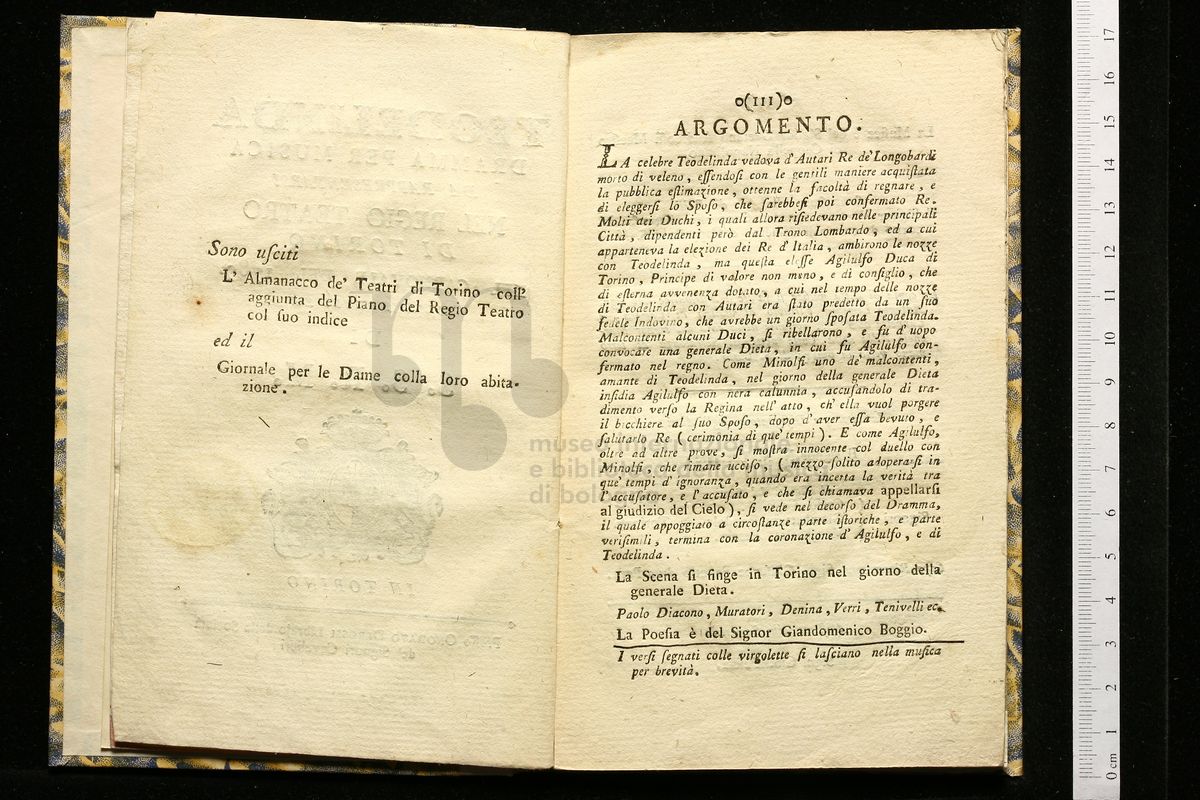 Sono uſciti
L' Almanacco de' Teatri di Torino coll'
aggiunta del Piano del Regio Teatro
col ſuo indice
ed il
Giornale per le Dame colla loro abita-
zione.
o(III)o
ARGOMENTO.
LA celebre Teodelinda vedova d' Autari Re de' Longobardi
morto di veleno, eſſendoſi con le gentili maniere acquiſtata
la pubblica eſtimazione, ottenne la facoltà di regnare, e
di eleggerſi lo Spoſo, che ſarebbeſi poi confermato Re.
Molti dei Duchi, i quali allora riſiedevano nelle principali
Città, dipendenti però dal Trono Lombardo, ed a cui
apparteneva la elezione dei Re d' Italia, ambirono le nozze
con Teodelinda, ma queſta eleſſe Agilulfo Duca di
Torino, Principe di valore non meno, e di conſiglio, che
di eſterna avvenenza dotato, a cui nel tempo delle nozze
di Teodelinda con Autari era ſtato predetto da un ſuo
fedele Indovino, che avrebbe un giorno ſpoſata Teodelinda.
Malcontenti alcuni Duci, ſi ribellarono, e fu d' uopo
convocare una generale Dieta, in cui fu Agilulfo con-
fermato nel regno. Come Minolfi uno de' malcontenti,
amante di Teodelinda, nel giorno della generale Dieta
inſidia Agilulfo con nera calunnia, accuſandolo di tra-
dimento verſo la Regina nell' atto, ch' ella vuol porgere
il bicchiere al ſuo Spoſo, dopo d' aver eſſa bevuto, e
ſalutarlo Re (cerimonia di que' tempi). E come Agilulfo,
oltre ad altre prove, ſi moſtra innocente col duello con
Minolfi, che rimane ucciſo, (mezzo ſolito adoperarſi in
que' tempi d' ignoranza, quando era incerta la verità tra
l' accuſatore, e l' accuſato, e che ſi chiamava appellarſi
al giudizio del Cielo), ſi vede nel decorſo del Dramma,
il quale appoggiato a circoſtanze parte iſtoriche, e parte
veriſimili, termina con la coronazione d' Agilulfo, e di
Teodelinda.
La Scena ſi finge in Torino nel giorno della
generale Dieta.
Paolo Diacono, Muratori, Denina, Verri, Tenivelli ec.
La Poeſia è del Signor Giandomenico Boggio.
I verſi ſegnati colle virgolette ſi laſciano nella muſica
per brevità.